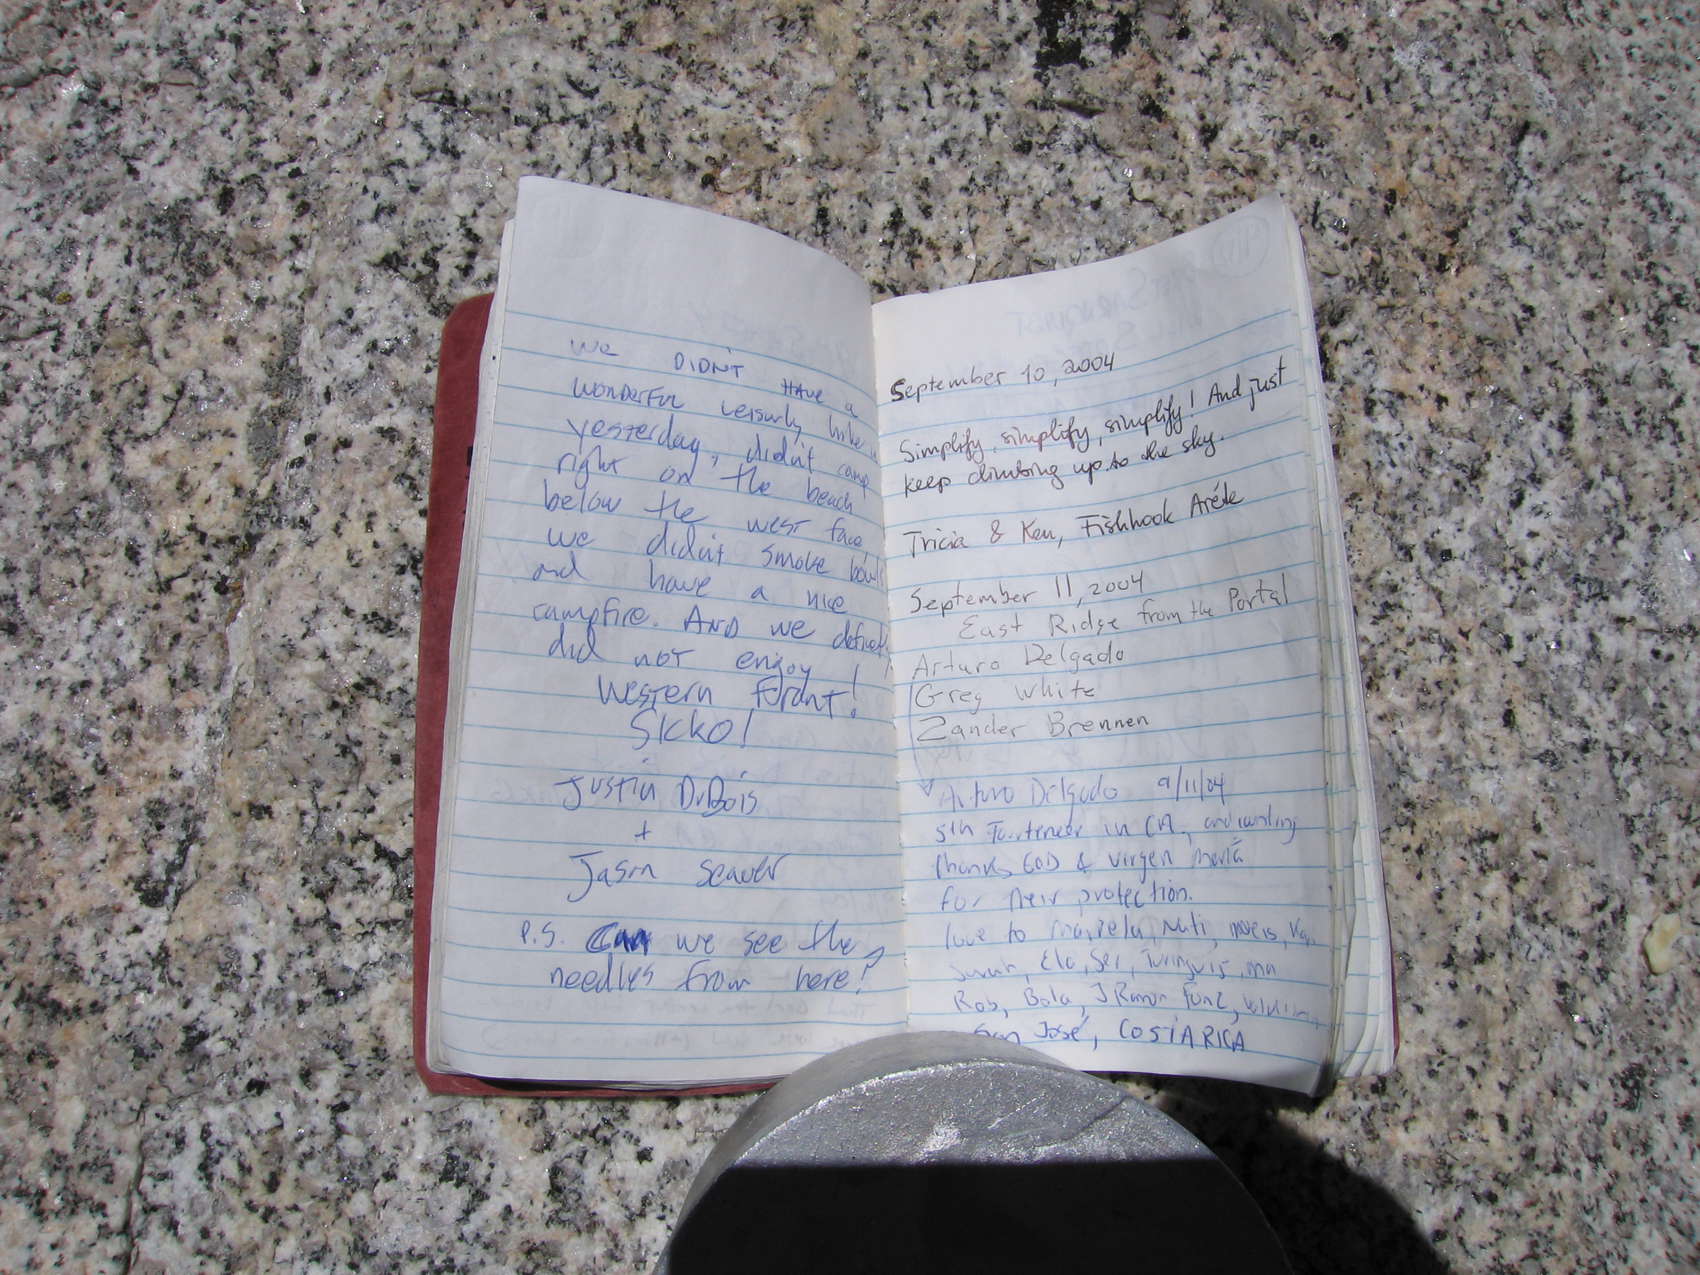 we DIDN'T HAVE a
WONDERFUL leisurly hike
yesterday, didn't camp
right on the beach
below the west face
we didn't smoke bowls
and have a nice
campfire. AND we
did not enjoy
Western Front!
Sicko!
Justin DuBois
+
Jason Seaver
P.S. Can we see the
needles from here?
September 10, 2004
Simplify, simplify, simplify! And just
keep climbing up to the sky.
Tricia & Ken, Fishhook Arête
September 11, 2004
East Ridge from the Portal
Arturo Delgado
Greg White
Zander Brennen
Arturo Delgado 9/11/04
5th Fourteneer in CA, and counting
thanks GOD & Virgen María
for their protection.
love to Mariela, Nati,
Sarah, Elo, Ser,
Rob, Bola, J Ramon
San José, COSTA RICA